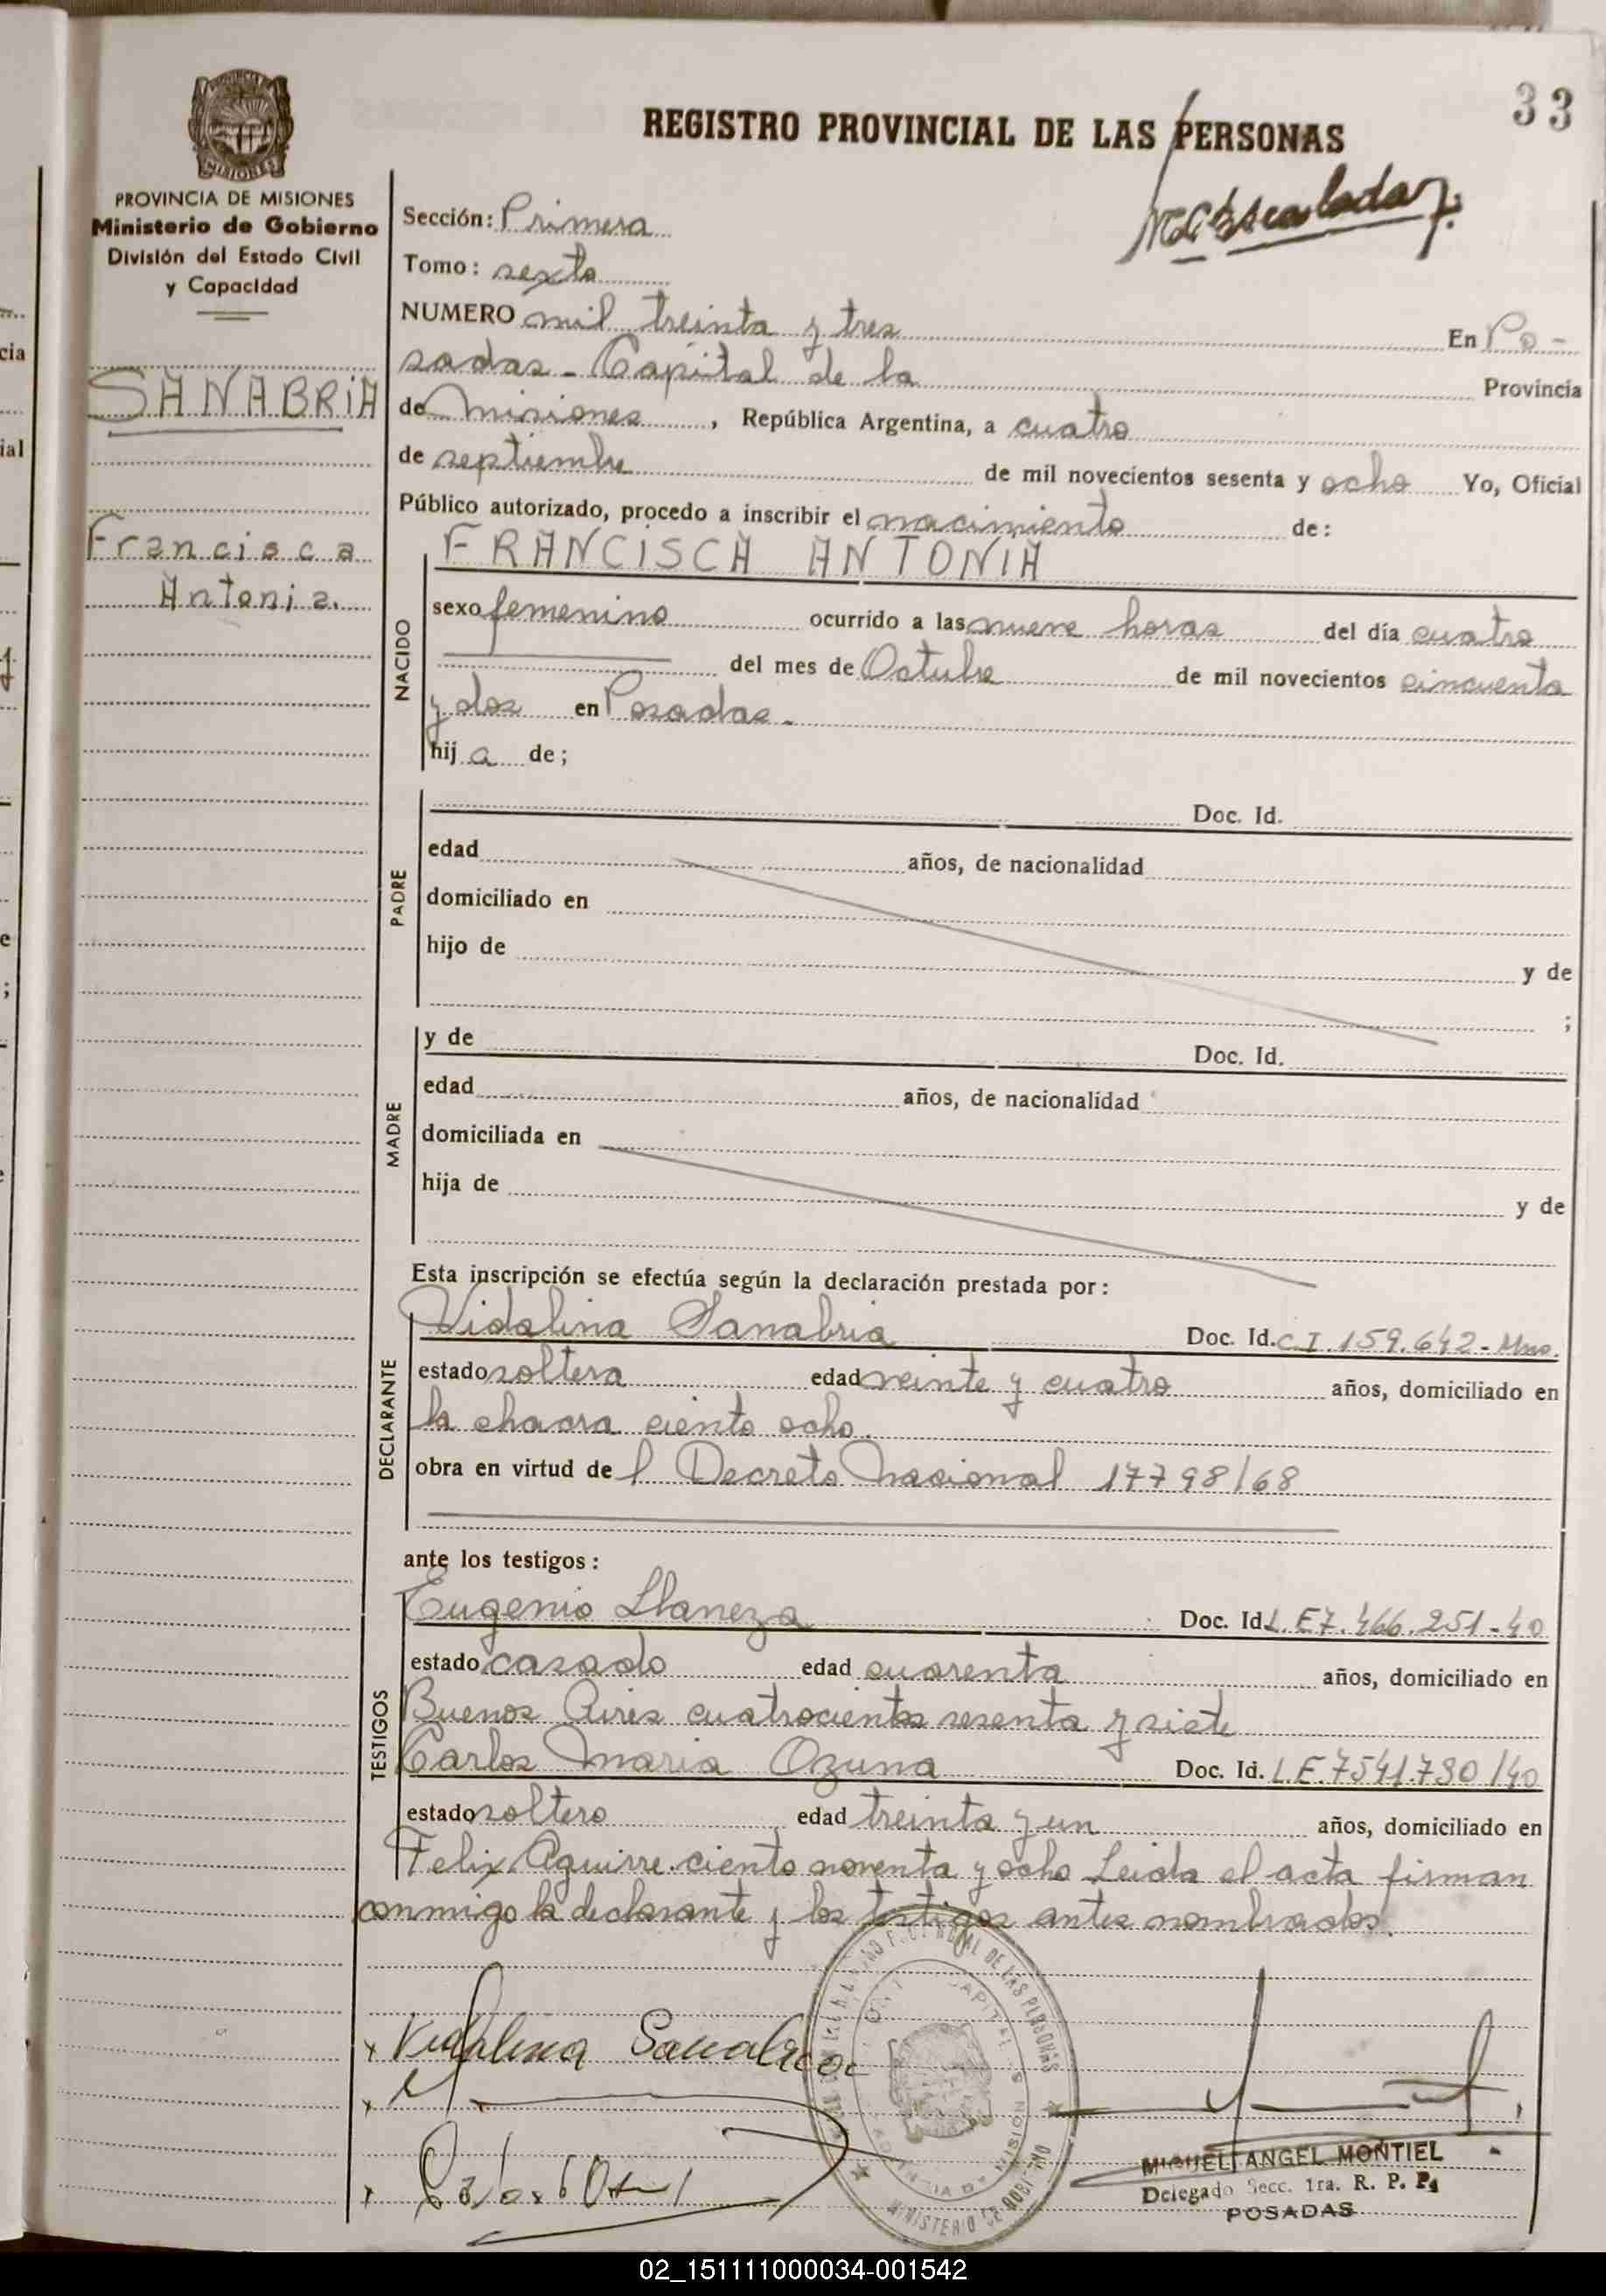 33
REGISTRO PROVINCIAL DE LAS PERSONAS
PROVINCIA DE MISIONES
Ministerio de Gobierno
División del Estado Civil
y Capacidad
SANABRIA
Francisca
Antonia.
Sección: Primera
Tomo: sexto
NUMERO mil treinta y tres En Po-
sadas - Capital de la Provincia
de Misiones, República Argentina, a cuatro
de septiembre de mil novecientos sesenta y ocho Yo, Oficial
Público autorizado, procedo a inscribir el nacimiento de:
FRANCISCA ANTONIA
NACIDO
sexo femenino ocurrido a las nueve horas del día cuatro
del mes de Octubre de mil novecientos cincuenta
y dos en Posadas.
hija de;
PADRE
Doc. Id.
edad años, de nacionalidad
domiciliado en
hijo de y de
;
MADRE
y de Doc. Id.
edad años, de nacionalidad
domiciliada en
hija de y de
Esta inscripción se efectúa según la declaración prestada por:
DECLARANTE
Vidalina Sanabria Doc. Id. C.I. 159.642 - Mnes.
estado soltera edad veinte y cuatro años, domiciliado en
la chacra ciento ocho.
obra en virtud de l Decreto Nacional 17798/68
ante los testigos:
TESTIGOS
Eugenio Llaneza Doc. Id. L.E 7.466.251-40
estado casado edad cuarenta años, domiciliado en
Buenos Aires cuatrocientos sesenta y siete
Carlos Maria Ozuna Doc. Id. L.E. 7541.730/40
estado soltero edad treinta y un años, domiciliado en
Felix Aguirre ciento noventa y ocho Leida el acta firman
conmigo la declarante y los testigos antes nombrados.
x Vidalina Sanabria
x
x
MINISTERIO DE GOBIERNO
MIGUEL ANGEL MONTIEL
Delegado Secc. 1ra. R. P. P.
POSADAS
02_151111000034-001542